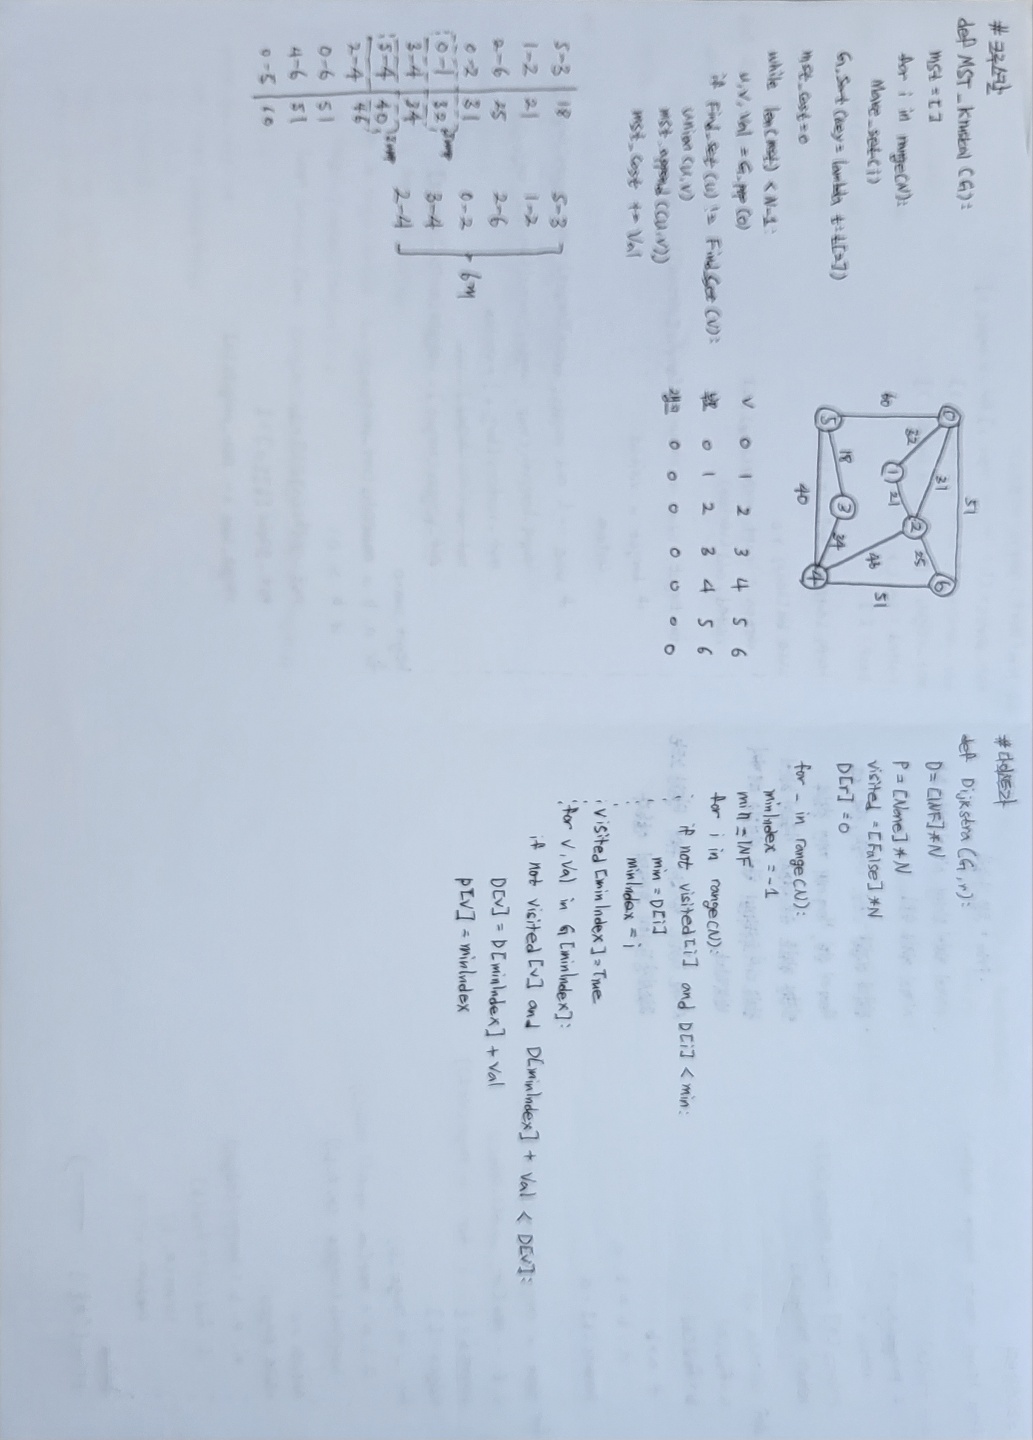 # 크루스칼
def MST_Kruskal (G):
mst = [ ]
for i in range(N):
Make_set(i)
G.sort (key = lambda t: t[2])
mst_cost = 0
while len(mst) < N-1:
u, v, val = G.pop(0)
if Find_set(u) != Find_Set(v):
union(u,v)
mst_append((u,v))
mst_cost += val
51
0
31
6
32
2
25
1
21
60
46
51
18
3
34
5
4
40
V 0 1 2 3 4 5 6
부모 0 1 2 3 4 5 6
랭크 0 0 0 0 0 0 0
5-3 18
1-2 21
2-6 25
0-2 31
0-1 32
3-4 34
5-4 40
2-4 46
0-6 51
4-6 51
0-5 60
5-3
1-2
2-6
0-2
3-4
2-4
# 다익스트라
def Dijkstra (G, r):
D = [INF] * N
P = [None] * N
visited = [False] * N
D[r] = 0
for _ in range(N):
minIndex = -1
min = INF
for i in range(N):
if not visited[i] and D[i] < min:
min = D[i]
minIndex = i
visited [minIndex] = True
for v, val in G[minIndex]:
if not visited[v] and D[minIndex] + val < D[v]:
D[v] = D[minIndex] + val
P[v] = minIndex